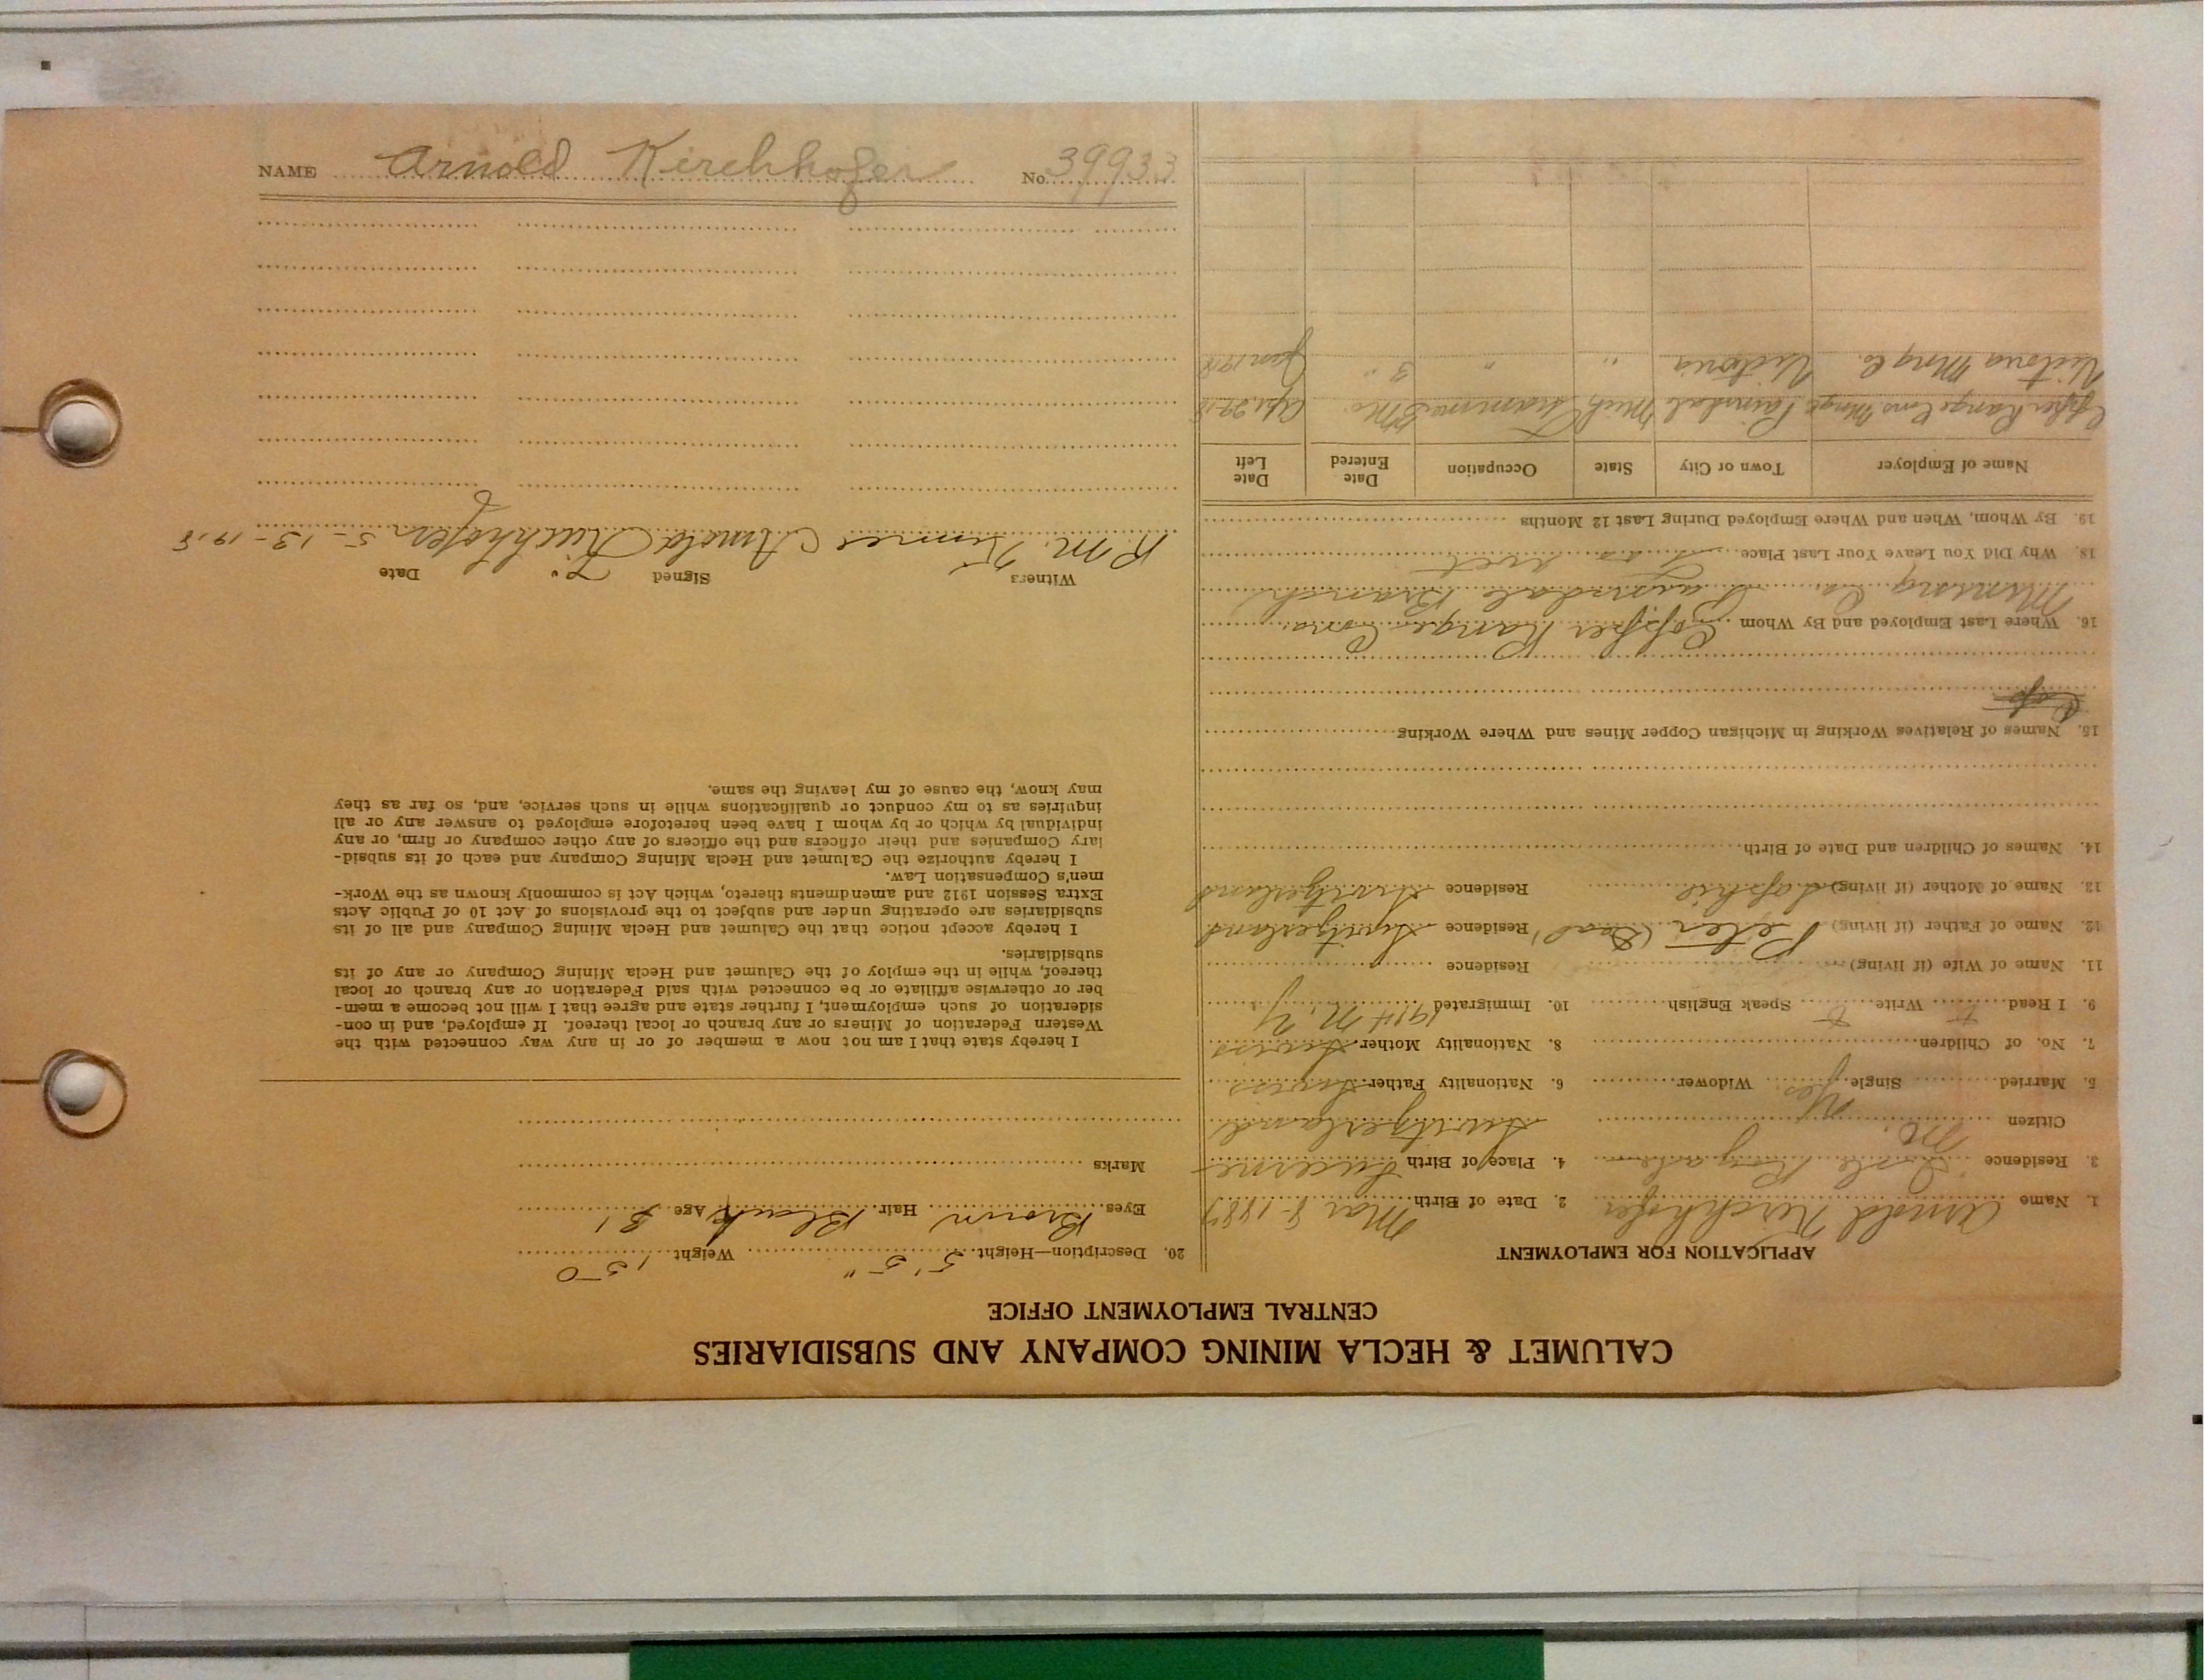 NAME Arnold Kirchhofer No. 39933
CALUMET & HECLA MINING COMPANY AND SUBSIDIARIES
CENTRAL EMPLOYMENT OFFICE
APPLICATION FOR EMPLOYMENT
1. Name Arnold Kirchhofer 2. Date of Birth Mar 8-1887
3. Residence Isle Royale 4. Place of Birth Lucerne
Citizen Switzerland
5. Married Single Yes Widower 6. Nationality Father Swiss
7. No. of Children 8. Nationality Mother Swiss
9. I Read Write Speak English 10. Immigrated 1914 N.Y
11. Name of Wife (if living) Residence
12. Name of Father (if living) Peter (Dead) Residence Switzerland
13. Name of Mother (if living) Sophie Residence Switzerland
14. Names of Children and Date of Birth
15. Names of Relatives Working in Michigan Copper Mines and Where Working
16. Where Last Employed and By Whom Copper Range Cons.
Mining Co. Painsdale Branch
18. Why Did You Leave Your Last Place
19. By Whom, When and Where Employed During Last 12 Months
Name of Employer Town or City State Occupation Date Entered Date Left
Copper Range Cons Mng Co Painsdale Mich Trammer 3 Mo. Apr. 29-18
Victoria Mng Co. Victoria " " 3 " Jan 1918
20. Description—Height 5' 5" Weight 150
Eyes Brown Hair Black Age 31
Marks
I hereby state that I am not now a member of or in any way connected with the
Western Federation of Miners or any branch or local thereof. If employed, and in con-
sideration of such employment, I further state and agree that I will not become a mem-
ber or otherwise affiliate or be connected with said Federation or any branch or local
thereof, while in the employ of the Calumet and Hecla Mining Company or any of its
subsidiaries.
I hereby accept notice that the Calumet and Hecla Mining Company and all of its
subsidiaries are operating under and subject to the provisions of Act 10 of Public Acts
Extra Session 1912 and amendments thereto, which Act is commonly known as the Work-
men's Compensation Law.
I hereby authorize the Calumet and Hecla Mining Company and each of its subsid-
iary Companies and their officers and the officers of any other company or firm, or any
individual by which or by whom I have been heretofore employed to answer any or all
inquiries as to my conduct or qualifications while in such service, and, so far as they
may know, the cause of my leaving the same.
Witness Signed Date
R. M. Arnold Kirchhofer 5-13-1918